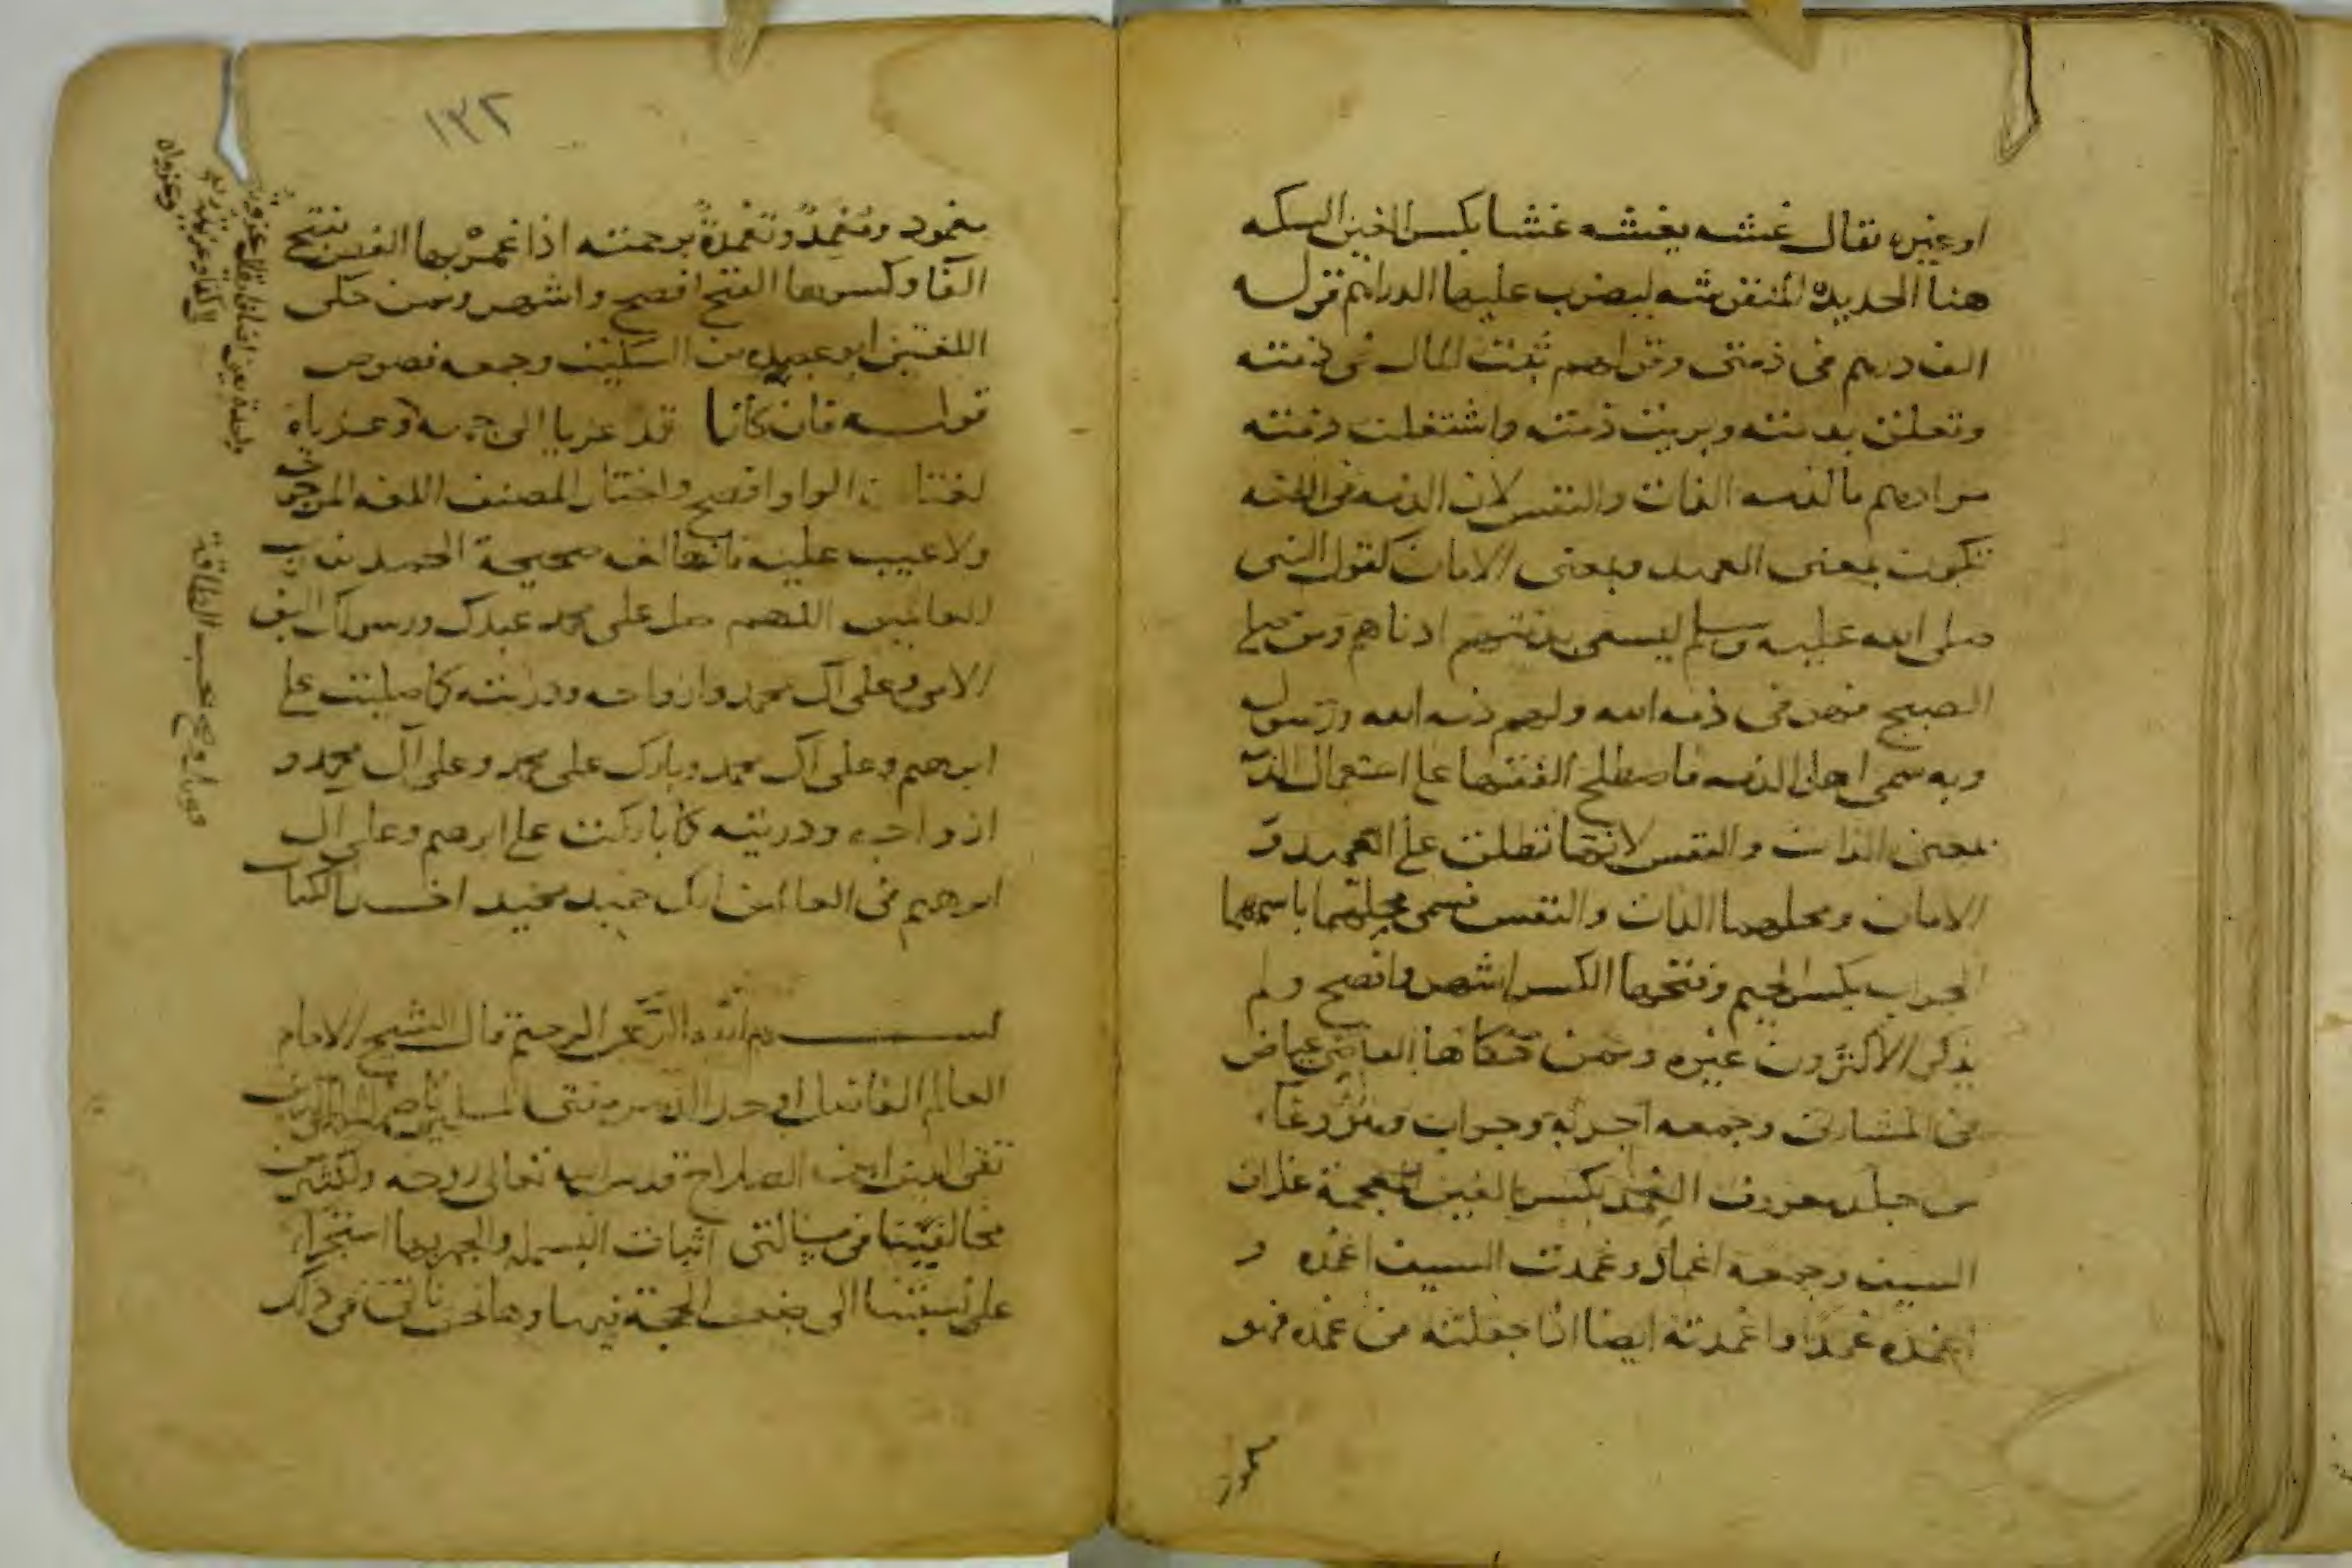 او غيره يقال غشه يغشه غشا بكسر الغين السكه
هنا الحديدة المنقوشه ليضرب عليها الدراهم قوله
الف درهم فى ذمتى وقولهم ثبت المال فى ذمته
وتعلق بذمته وبريت ذمته واشتغلت ذمته
مرادهم بالذمه الذات والنفس لان الذمه فى اللغه
تكون بمعنى العهد وبمعنى الامان كقول النبى
صلى الله عليه وسلم يسعى بذمتهم ادناهم ومن صلى
الصبح فهو فى ذمه الله ولهم ذمه الله ورسول
وبه سمى اهل الذمه فاصطلح الفقها على استعمال الذمة
بمعنى الذات والنفس لانها تطلق على العهد و
الامان ومحلهما الذات والنفس فسمى محلهما باسمهما
الجراب بكسر الجيم وفتحها الكسر اشهر وافصح ولم
يذكر الاكثرون غيره وممن حكاها القاضى عياض
فى المشارق وجمعه اجربة وجرب وهو وعاء
من جلد معروف الغمد بكسر الغين المعجمة غلاف
السيف وجمعه اغماد وغمدت السيف اغمده و
اغمده غمدا واغمدته ايضا اذا جعلته فى غمده فهو
مغمود
١٣٢
مغمود ومغمد وتغمده برحمته اذا غمره بها الفص بفتح
الفا وكسرها الفتح افصح واشهر وممن حكى
اللغتين ابو عبيده بن السكيت وجمعه فصوص
قوله فان كانا قد عزيا الى
لغتان الواو افصح واختار المصنف اللغه
ولا عيب عليه فانها لغه صحيحة الحمد لله رب
العالمين اللهم صل على محمد عبدك ورسولك النبى
الامى وعلى آل محمد وازواجه وذريته كما صليت على
ابرهيم وعلى آل محمد وبارك على محمد وعلى آل محمد و
ازواجه وذريته كما باركت على ابرهيم وعلى آل
ابرهيم فى العالمين انك حميد مجيد اخر الكتاب
بسم الله الرحمن الرحيم قال الشيخ الامام
العالم الفاضل اوحد الدهر مفتى المسلمين
تقى الدين ابن الصلاح قدس الله تعالى روحه ولكثير من
مخالفينا فى مسالتى اثبات البسمله والجهر بها استجراء
على نسبتنا الى ضعف الحجة فيها وها نحن ناتى فى ذلك